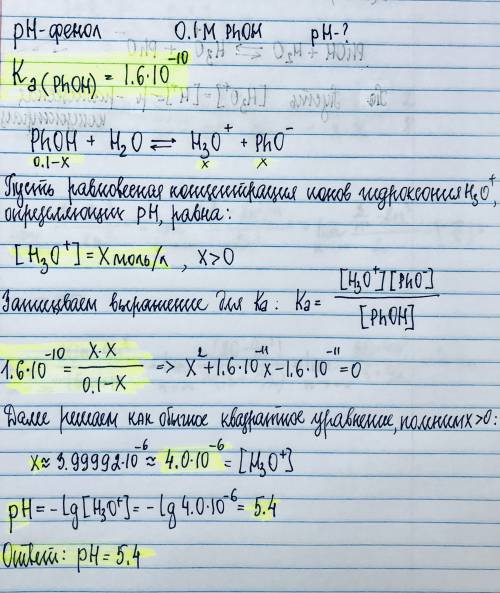 pH-фенол 0.1 M PhOH pH-?
Ka(PhOH) = 1.6·10⁻¹⁰
PhOH + H₂O ⇌ H₃O⁺ + PhO⁻
0.1-x x x
Пусть равновесная концентрация ионов гидроксония H₃O⁺,
определяющих pH, равна:
[H₃O⁺] = X моль/л , x>0
Записываем выражение для Ka: Ka = [H₃O⁺][PhO⁻] / [PhOH]
1.6·10⁻¹⁰ = x·x / 0.1-x => x² + 1.6·10⁻¹¹x - 1.6·10⁻¹¹ = 0
Далее решаем как обычное квадратное уравнение, помним x>0:
x ≈ 3.99992·10⁻⁶ ≈ 4.0·10⁻⁶ = [H₃O⁺]
pH = -lg[H₃O⁺] = -lg 4.0·10⁻⁶ = 5.4
Ответ: pH = 5.4